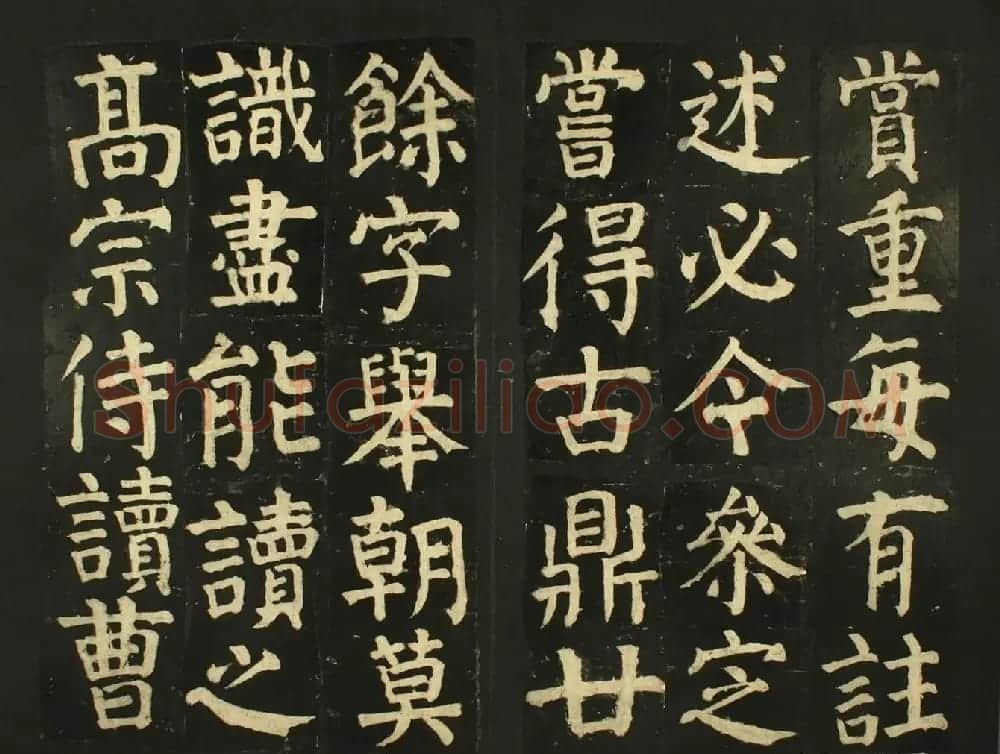 賞重每有註
述必令叅定
嘗得古鼎廿
餘字舉朝莫
識盡能讀之
髙宗侍讀曹
Shufaziliao.COM